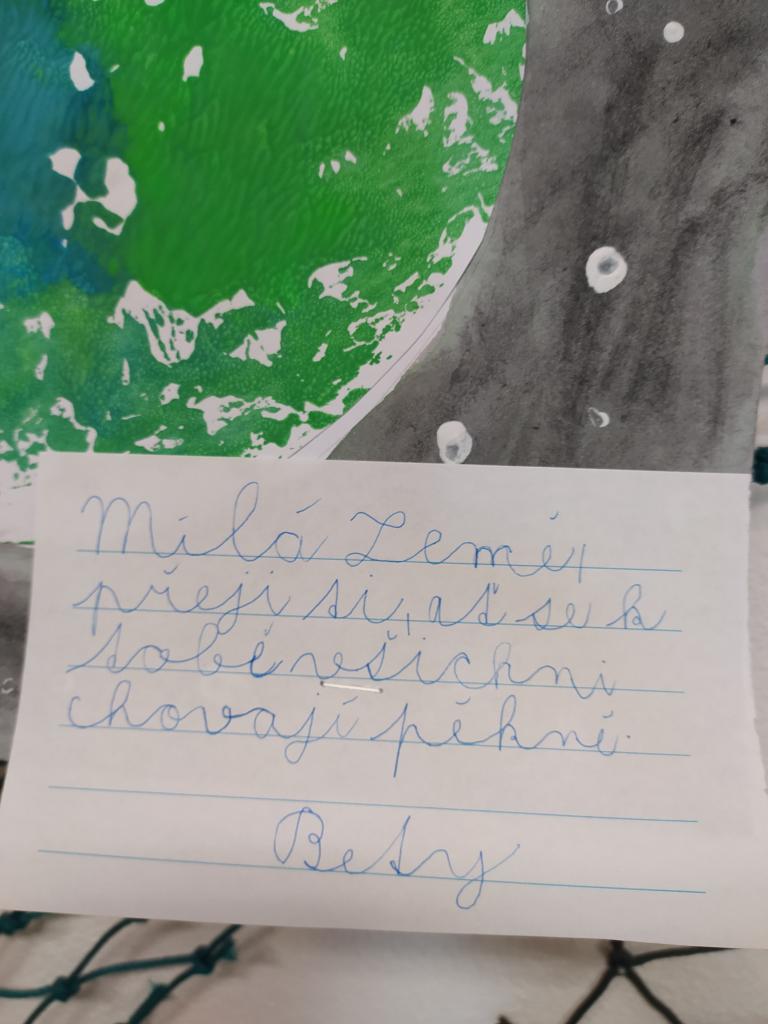 Milá Země,
přeji si, ať se k
sobě všichni
chovají pěkně.
Bety